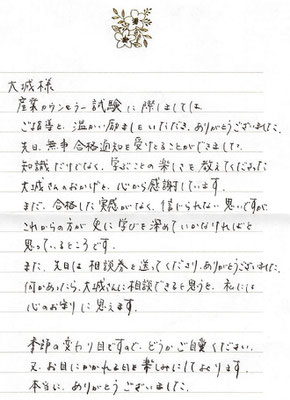 大城様
産業カウンセラー試験に際しましては
ご指導と、温かい励ましをいただき、ありがとうございました。
先日、無事合格通知を受けとることができました。
知識だけでなく、学ぶことの楽しさを教えてくださった
大城さんのおかげと、心から感謝しています。
まだ、合格した実感がなく、信じられない思いですが
これからの方が更に学びを深めていかなければと
思っているところです。
また、先日は相談券を送ってくださり、ありがとうございました。
何かあったら、大城さんに相談できると思うと、私には
心のお守りに思えます。
季節の変わり目ですので、どうかご自愛ください。
又、お目にかかれる日を楽しみにしております。
本当に、ありがとうございました。